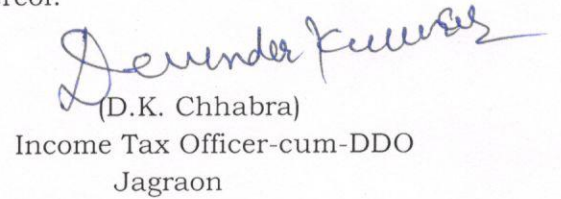 ereof.
Devinder Kumar
(D.K. Chhabra)
Income Tax Officer-cum-DDO
Jagraon